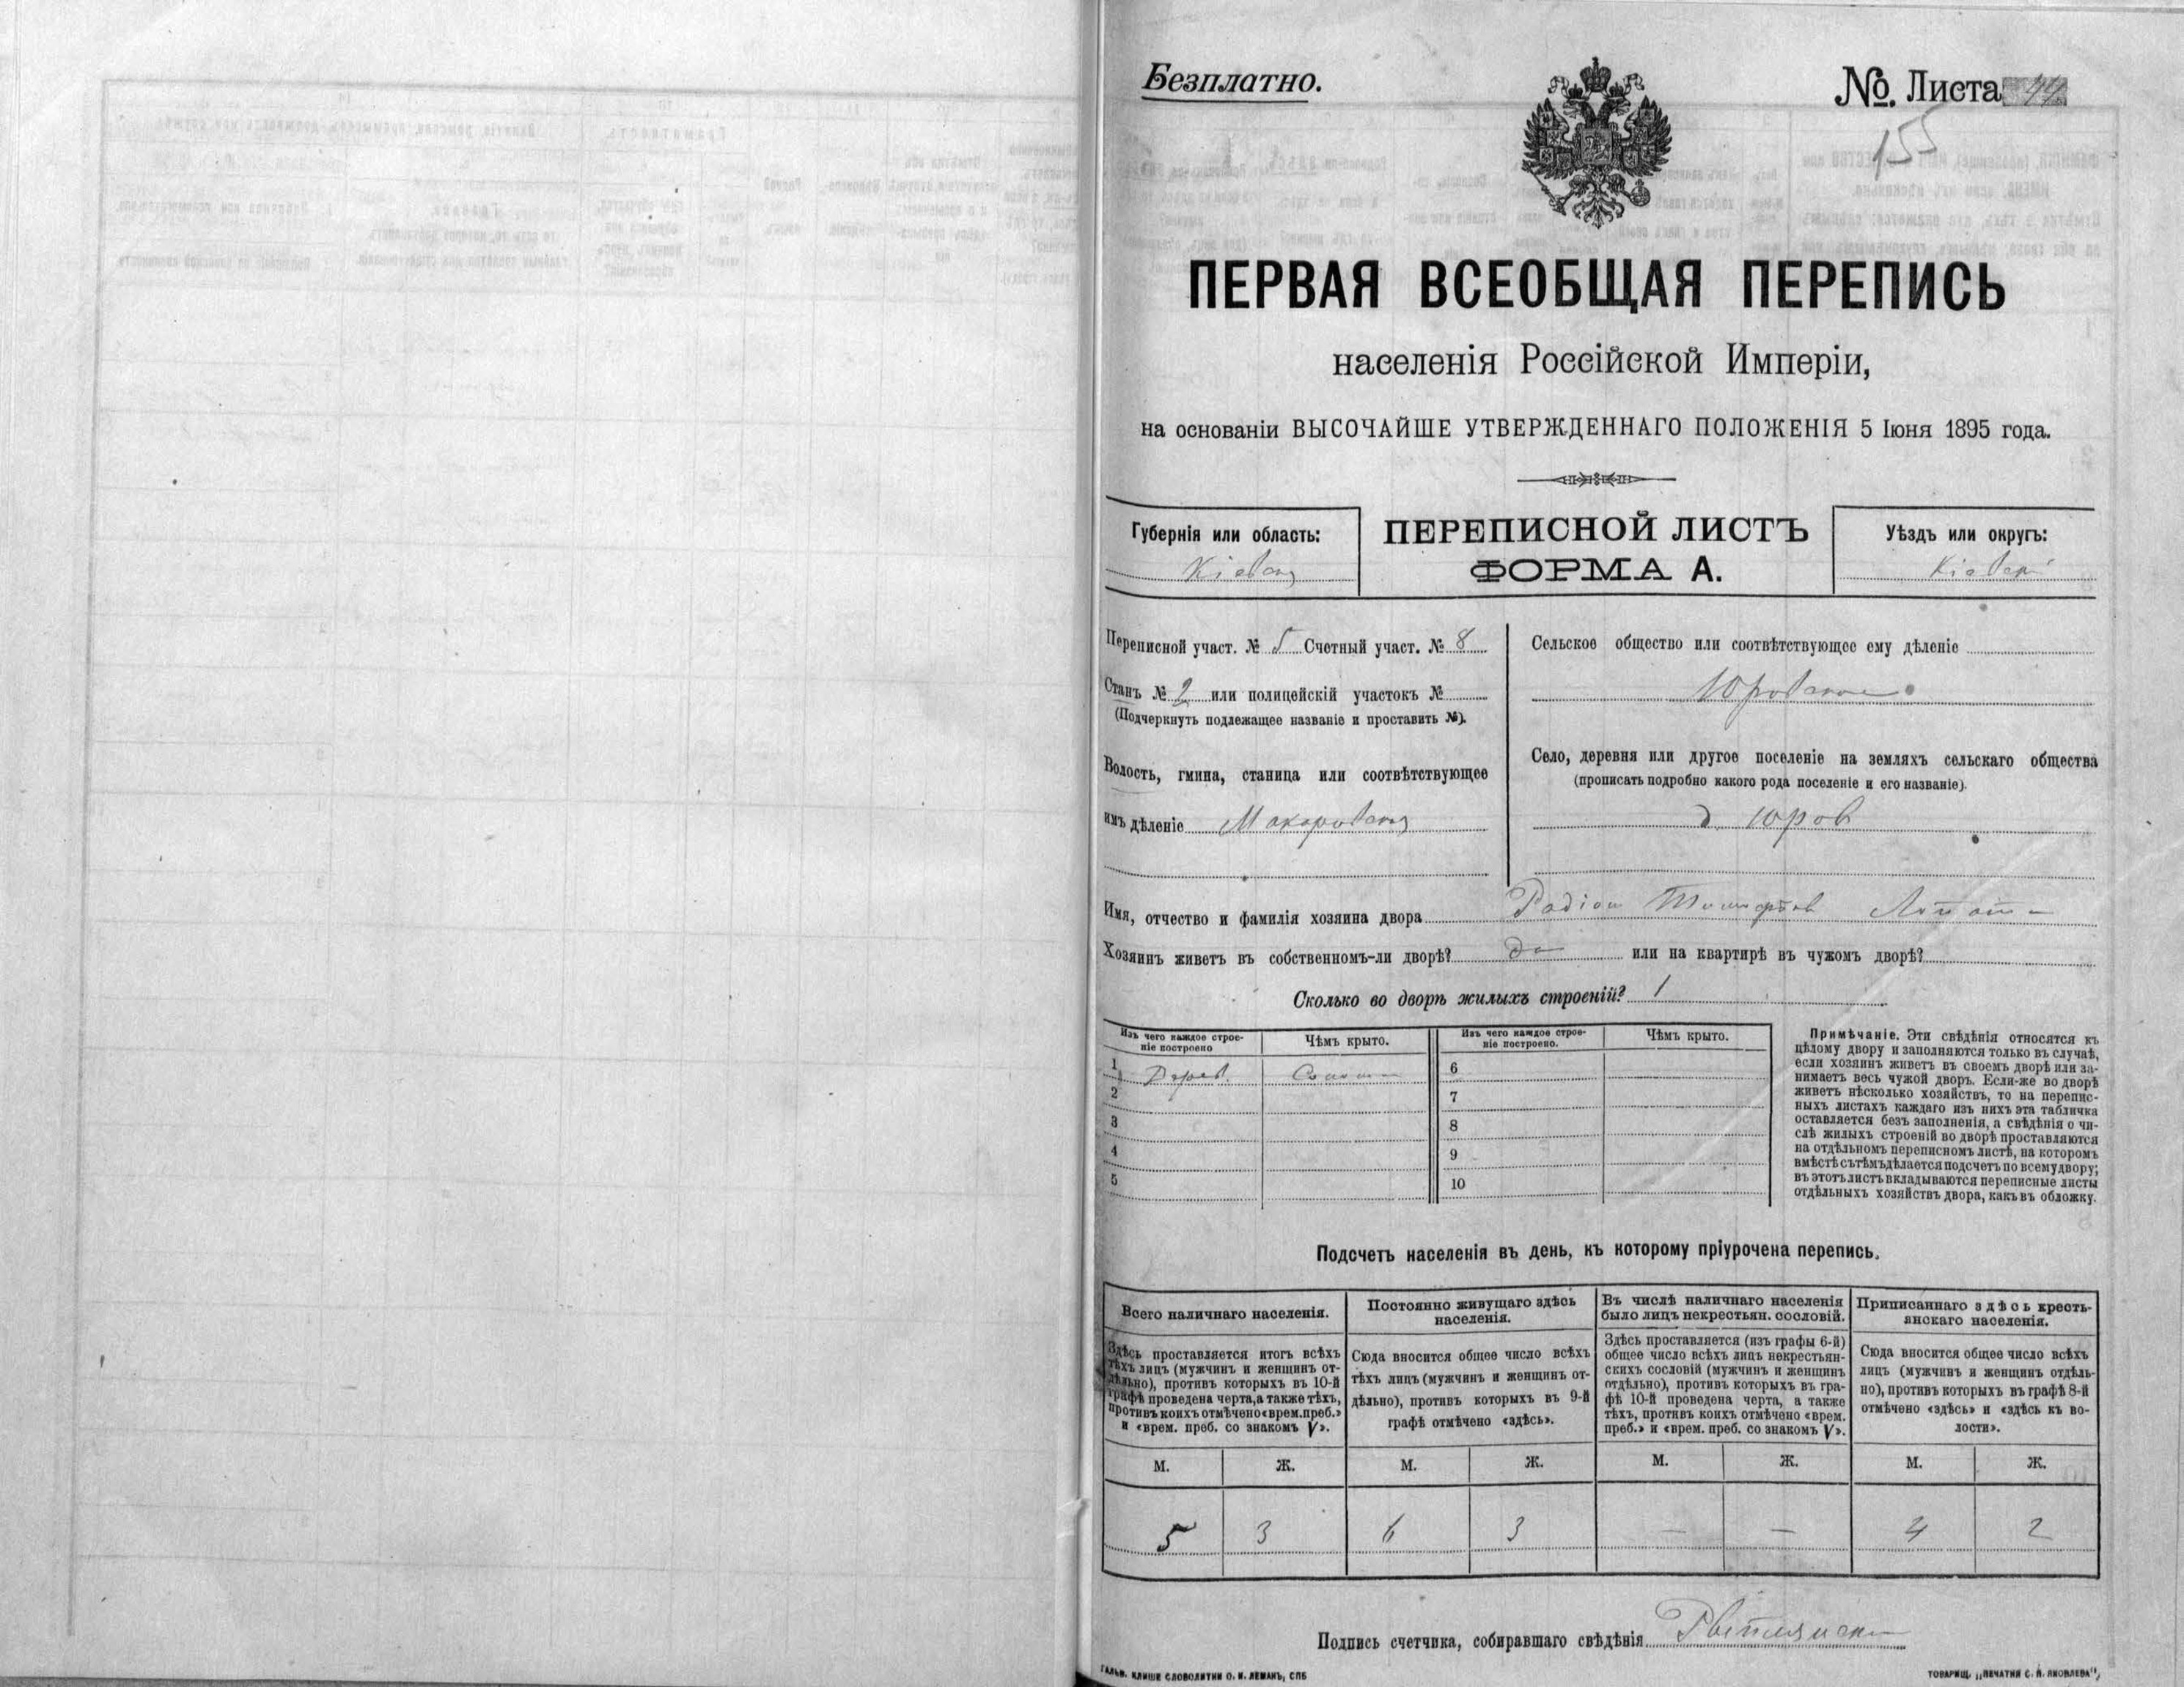 Безплатно.
№. Листа 44
155
ПЕРВАЯ ВСЕОБЩАЯ ПЕРЕПИСЬ
населенія Россійской Имперіи,
на основаніи ВЫСОЧАЙШЕ УТВЕРЖДЕННАГО ПОЛОЖЕНІЯ 5 Іюня 1895 года.
Губернія или область:
Кіевская
ПЕРЕПИСНОЙ ЛИСТЪ
ФОРМА А.
Уѣздъ или округъ:
Кіевскій
Переписной участ. № 5 Счетный участ. № 8
Станъ № 2 или полицейскій участокъ №
(Подчеркнуть подлежащее названіе и проставить №).
Волость, гмина, станица или соотвѣтствующее
имъ дѣленіе Макаровская
Сельское общество или соотвѣтствующее ему дѣленіе
Юровское
Село, деревня или другое поселеніе на земляхъ сельскаго общества
(прописать подробно какого рода поселеніе и его названіе).
д. Юров
Имя, отчество и фамилія хозяина двора Радіон
Хозяинъ живетъ въ собственномъ-ли дворѣ? да или на квартирѣ въ чужомъ дворѣ?
Сколько во дворѣ жилыхъ строеній? 1
Изъ чего каждое строе-
ніе построено
Чѣмъ крыто.
Изъ чего каждое строе-
ніе построено.
Чѣмъ крыто.
1 Дерев. Солом
2
3
4
5
6
7
8
9
10
Примѣчаніе. Эти свѣдѣнія относятся къ
цѣлому двору и заполняются только въ случаѣ,
если хозяинъ живетъ въ своемъ дворѣ или за-
нимаетъ весь чужой дворъ. Если-же во дворѣ
живетъ нѣсколько хозяйствъ, то на перепис-
ныхъ листахъ каждаго изъ нихъ эта табличка
оставляется безъ заполненія, а свѣдѣнія о чи-
слѣ жилыхъ строеній во дворѣ проставляются
на отдѣльномъ переписномъ листѣ, на которомъ
вмѣстѣ съ тѣмъ дѣлается подсчетъ по всему двору;
въ этотъ листъ вкладываются переписные листы
отдѣльныхъ хозяйствъ двора, какъ въ обложку.
Подсчетъ населенія въ день, къ которому пріурочена перепись.
Всего наличнаго населенія.
Здѣсь проставляется итогъ всѣхъ
тѣхъ лицъ (мужчинъ и женщинъ от-
дѣльно), противъ которыхъ въ 10-й
графѣ проведена черта, а также тѣхъ,
противъ коихъ отмѣчено «врем. преб.»
и «врем. преб. со знакомъ V».
Постоянно живущаго здѣсь
населенія.
Сюда вносится общее число всѣхъ
тѣхъ лицъ (мужчинъ и женщинъ от-
дѣльно), противъ которыхъ въ 9-й
графѣ отмѣчено «здѣсь».
Въ числѣ наличнаго населенія
было лицъ некрестьян. сословій.
Здѣсь проставляется (изъ графы 6-й)
общее число всѣхъ лицъ некрестьян-
скихъ сословій (мужчинъ и женщинъ
отдѣльно), противъ которыхъ въ гра-
фѣ 10-й проведена черта, а также
тѣхъ, противъ коихъ отмѣчено «врем.
преб.» и «врем. преб. со знакомъ V».
Приписаннаго здѣсь кресть-
янскаго населенія.
Сюда вносится общее число всѣхъ
лицъ (мужчинъ и женщинъ отдѣль-
но), противъ которыхъ въ графѣ 8-й
отмѣчено «здѣсь» и «здѣсь къ во-
лости».
М. Ж. М. Ж. М. Ж. М. Ж.
5 3 6 3 — — 4 2
Подпись счетчика, собиравшаго свѣдѣнія
ГАЛЬВ. КЛИШЕ СЛОВОЛИТНИ О. И. ЛЕМАНЪ, СПБ
ТОВАРИЩ. „ПЕЧАТНЯ С. П. ЯКОВЛЕВА",